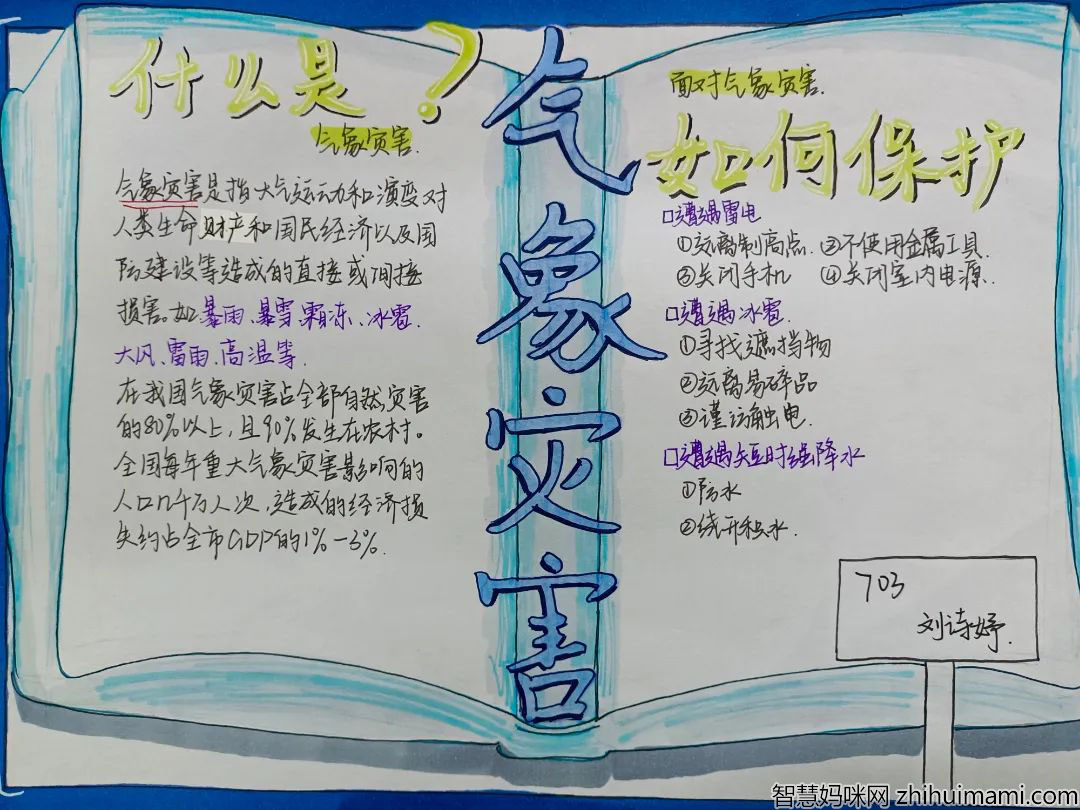 什么是？
气象灾害
气象灾害是指大气运动和演变对
人类生命财产和国民经济以及国
防建设等造成的直接或间接
损害。如暴雨、暴雪、霜冻、冰雹、
大风、雷雨、高温等
在我国气象灾害占全部自然灾害
的80%以上，且90%发生在农村。
全国每年重大气象灾害影响的
人口几千万人次，造成的经济损
失约占全市GDP的1%-3%.
气象灾害
面对气象灾害.
如何保护
□遭遇雷电
①远离制高点. ②不使用金属工具.
③关闭手机 ④关闭室内电源.
□遭遇冰雹
①寻找遮挡物
②远离易碎品
③谨防触电.
□遭遇短时强降水
①防水
②绕开积水.
703
刘诗妤.
智慧妈咪网 zhihuimami.com